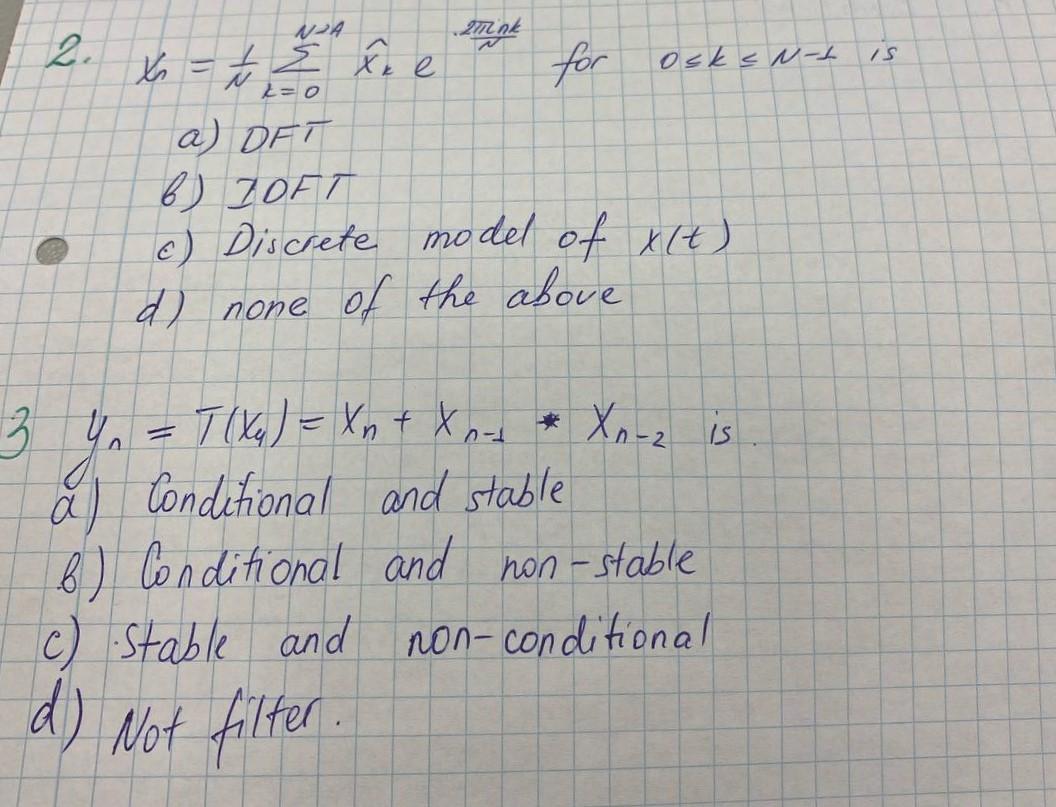 2. xₙ = 1/N Σ_{k=0}^{N-1} x̂ₖ e^{2πink/N} for 0≤k≤N-1 is
a) DFT
b) IDFT
c) Discrete model of x(t)
d) none of the above
3 yₙ = T(x₄) = xₙ + xₙ₋₁ * xₙ₋₂ is.
a) Conditional and stable
b) Conditional and non-stable
c) Stable and non-conditional
d) Not filter.